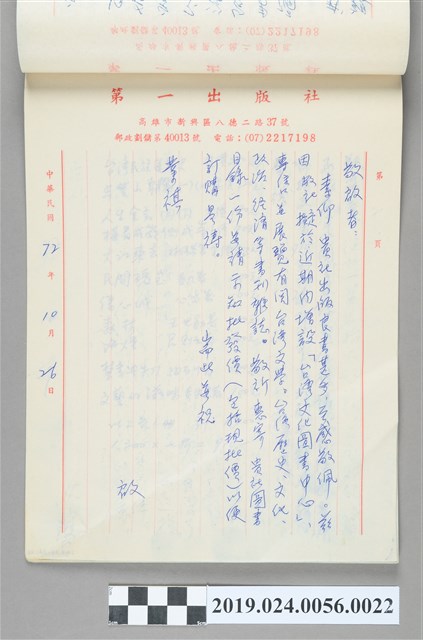 第一出版社
高雄市新興區八德二路37號
郵政劃儲第40013號 電話：(07)2217198
第 頁
敬啟者：
素仰 貴社出版良書甚多，至感敬佩。茲
因敝社擬於近期內增設「台灣文化圖書中心」，
專售並展覽有關台灣文學、台灣歷史、文化、
政治、經濟等書刊雜誌。敬祈 惠寄 貴社圖書
目錄一份並請示知批發價（包括現批價）以便
訂購是禱。 耑此並祝
業祺
啟
中華民國72年10月26日
2019.024.0056.0022